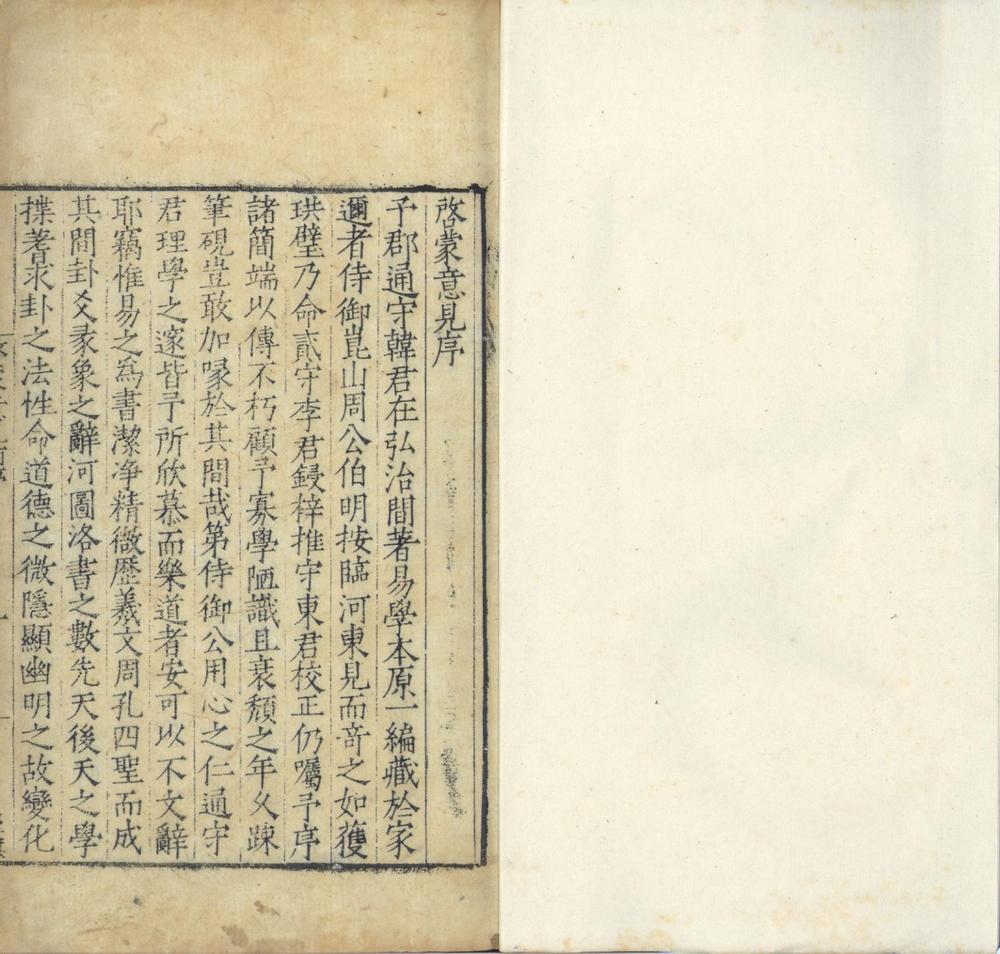 啓蒙意見序
予郡通守韓君在弘治間著易學本原一編藏於家
邇者侍御崑山周公伯明按臨河東見而奇之如獲
珙璧乃命貳守李君鋟梓推守東君校正仍囑予序
諸簡端以傳不朽顧予寡學陋識且衰頹之年久踈
筆硯豈敢加喙於其間哉第侍御公用心之仁通守
君理學之邃皆予所欣慕而樂道者安可以不文辭
耶竊惟易之為書潔淨精微歷羲文周孔四聖而成
其間卦爻彖象之辭河圖洛書之數先天後天之學
揲蓍求卦之法性命道德之微隱顯幽明之故變化